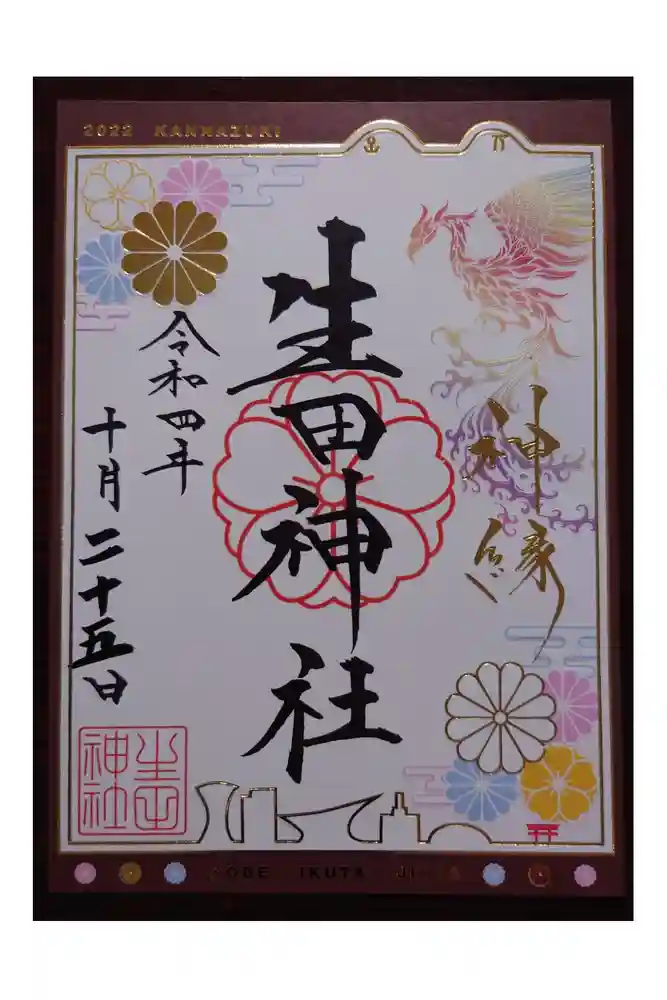 2022 KANNAZUKI
神縁
生田神社
令和四年
十月二十五日
生田神社
KOBE IKUTA JINJA